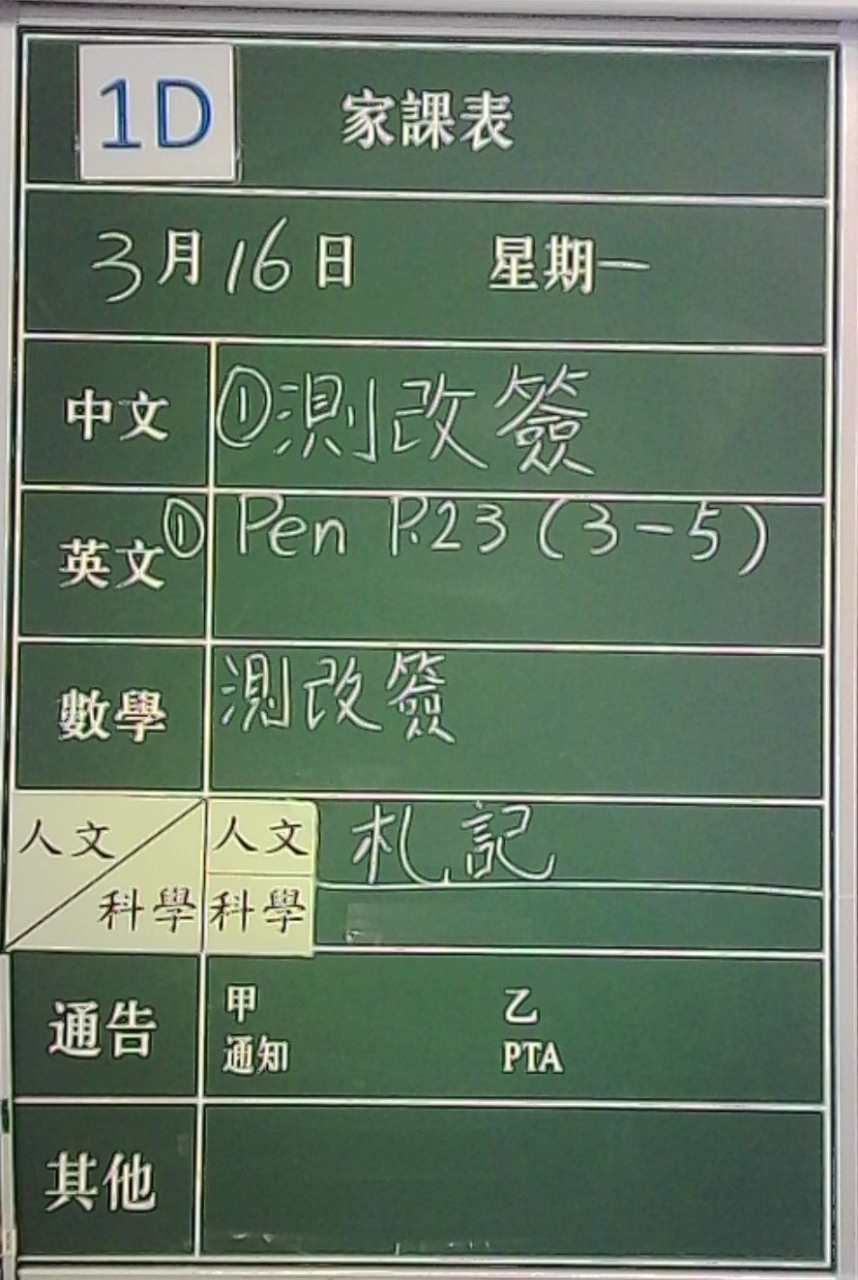 1D 家課表
3月16日 星期一
中文 ①測改簽
英文 ① Pen P.23 (3-5)
數學 測改簽
人文 人文 札記
科學 科學
通告 甲 乙
通知 PTA
其他